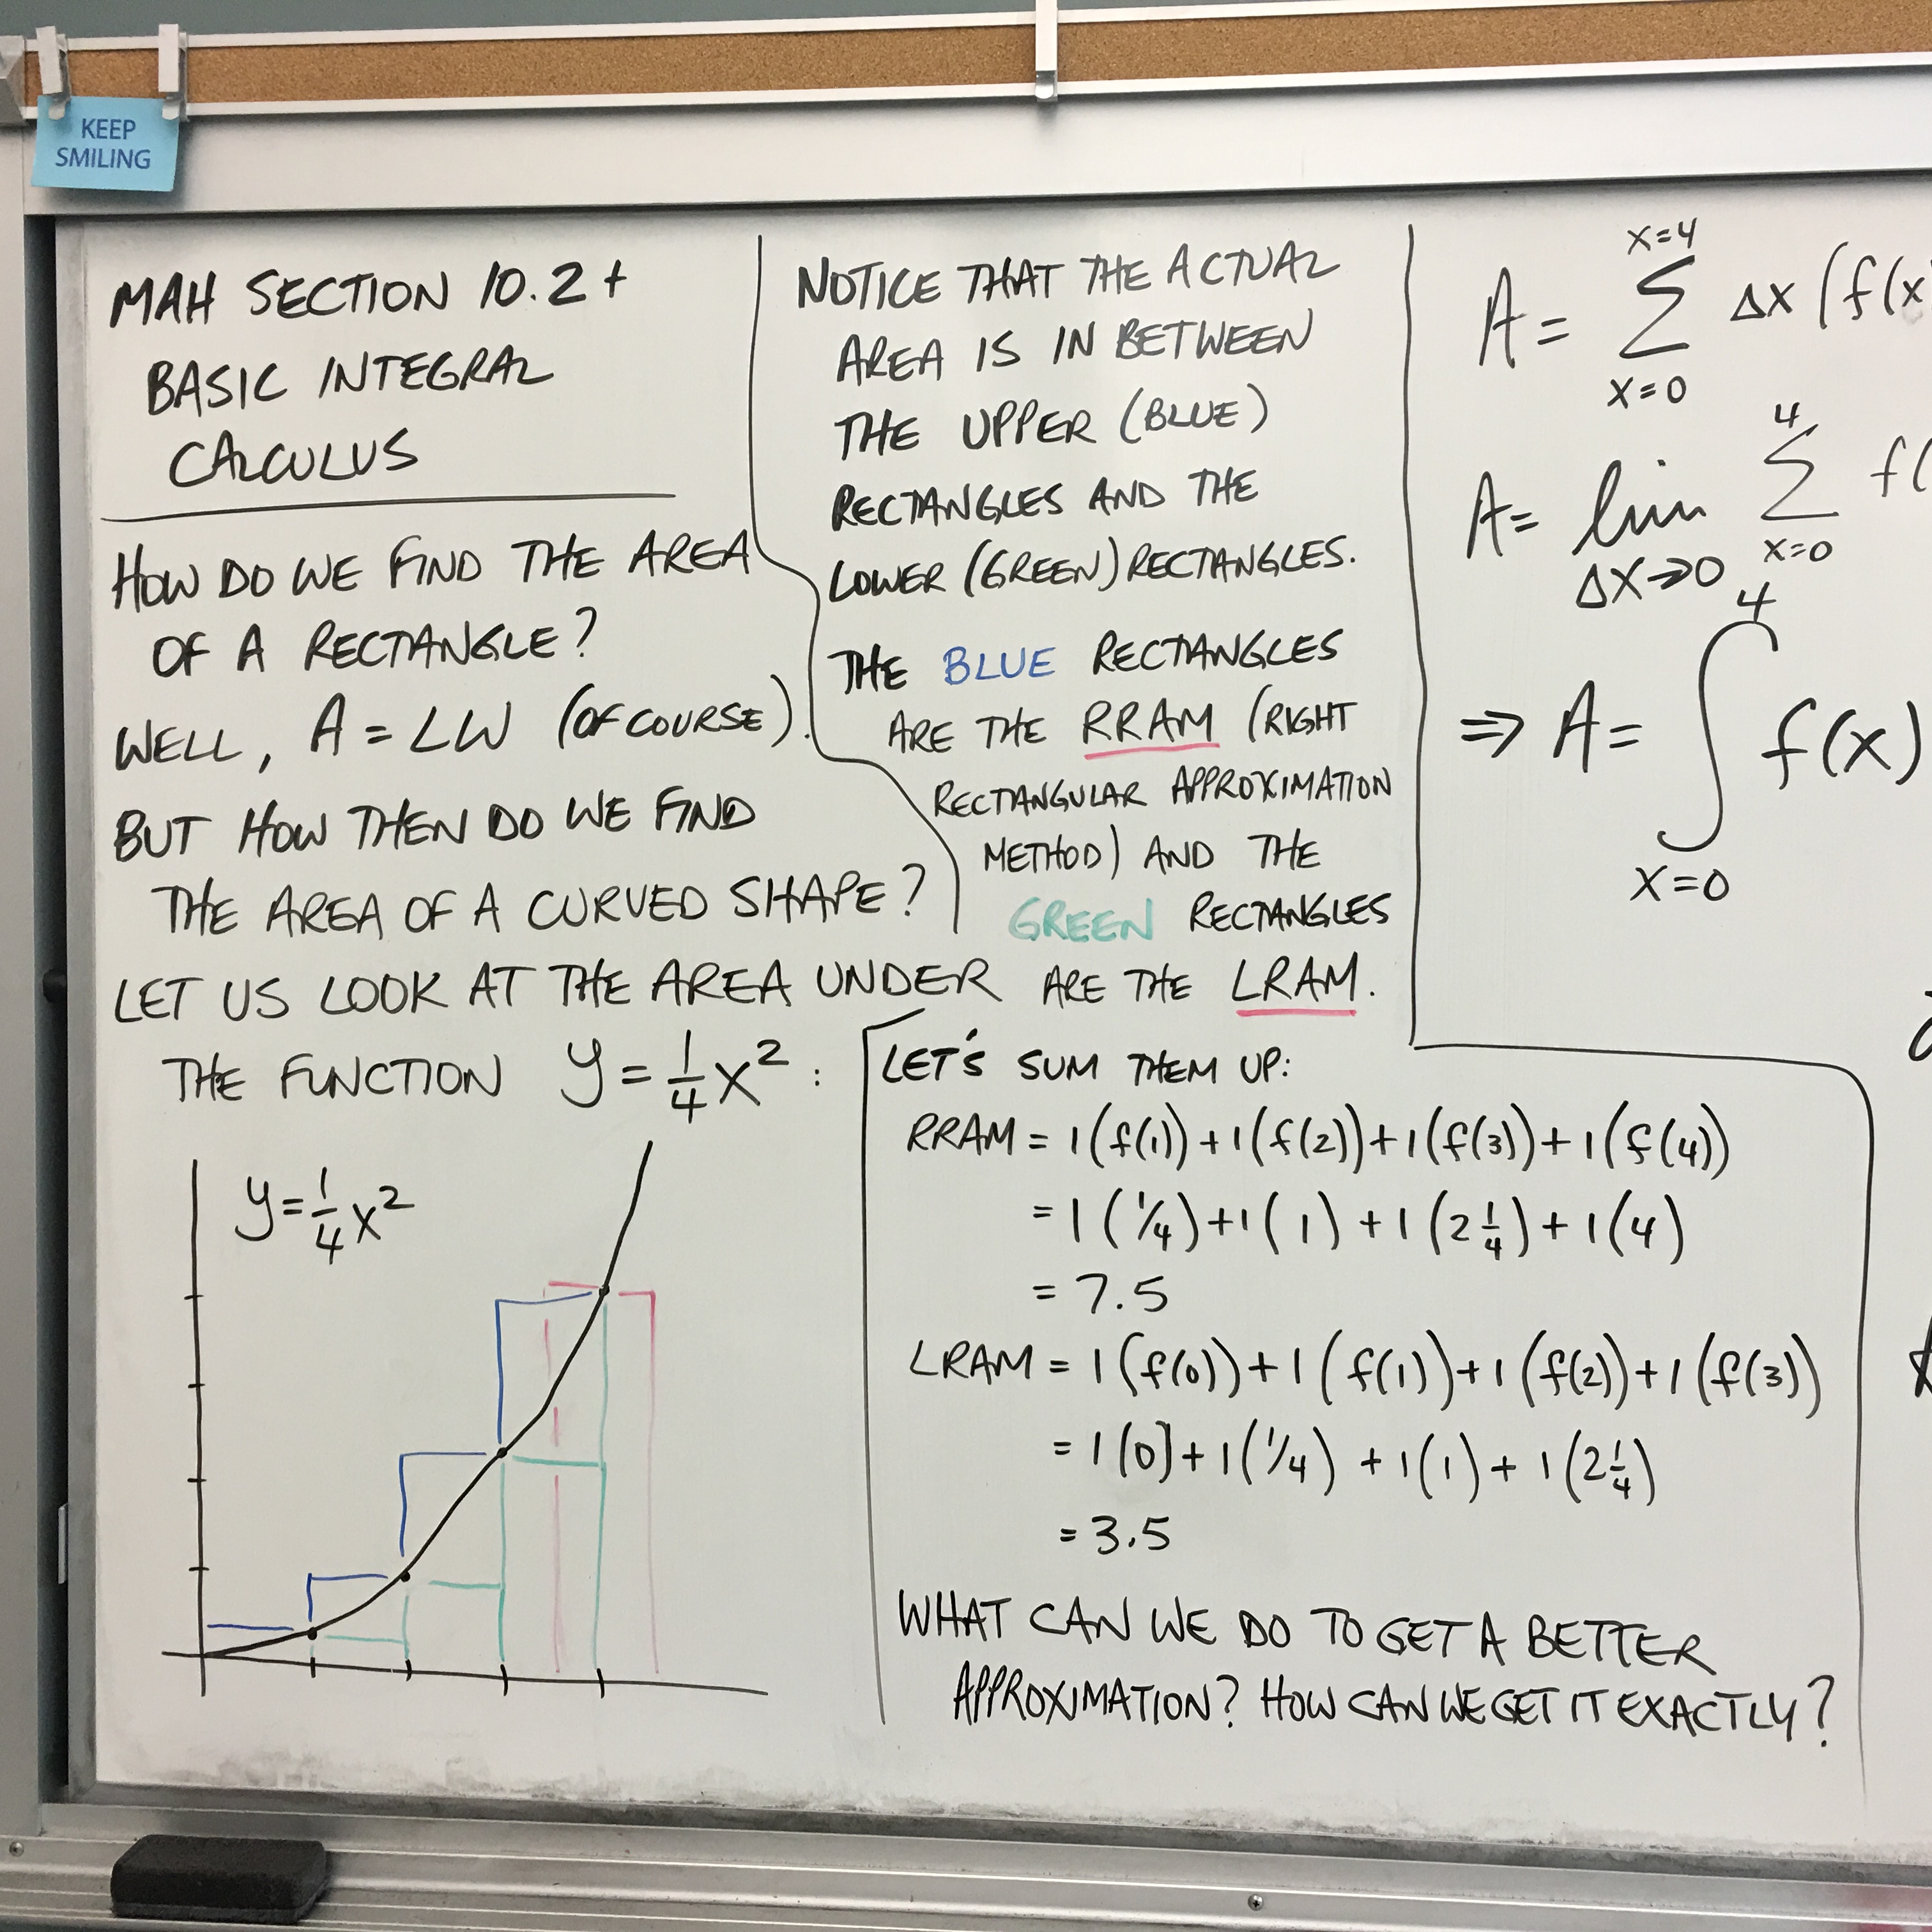 KEEP
SMILING
MAH SECTION 10.2+
BASIC INTEGRAL
CALCULUS
HOW DO WE FIND THE AREA
OF A RECTANGLE?
WELL, A = LW (OF COURSE).
BUT HOW THEN DO WE FIND
THE AREA OF A CURVED SHAPE?
LET US LOOK AT THE AREA UNDER
THE FUNCTION y = 1/4 x² :
y = 1/4 x²
NOTICE THAT THE ACTUAL
AREA IS IN BETWEEN
THE UPPER (BLUE)
RECTANGLES AND THE
LOWER (GREEN) RECTANGLES.
THE BLUE RECTANGLES
ARE THE RRAM (RIGHT
RECTANGULAR APPROXIMATION
METHOD) AND THE
GREEN RECTANGLES
ARE THE LRAM.
LET'S SUM THEM UP:
RRAM = 1(f(1)) + 1(f(2)) + 1(f(3)) + 1(f(4))
= 1(1/4) + 1(1) + 1(2 1/4) + 1(4)
= 7.5
LRAM = 1(f(0)) + 1(f(1)) + 1(f(2)) + 1(f(3))
= 1(0] + 1(1/4) + 1(1) + 1(2 1/4)
= 3.5
WHAT CAN WE DO TO GET A BETTER
APPROXIMATION? HOW CAN WE GET IT EXACTLY?
x=4
A = Σ Δx (f(x
x=0
4
A = lim Σ f(
Δx→0 x=0
4
⇒ A = ∫ f(x)
x=0